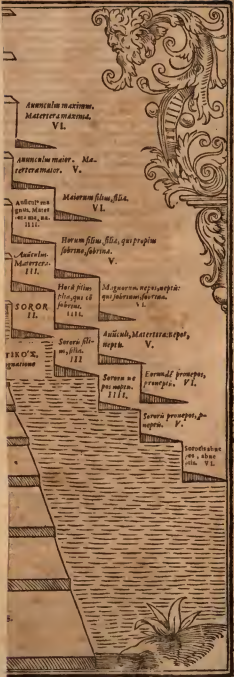 Auunculus maximus.
Matertera maxima.
VI.
Auunculus maior. Ma-
tertera maior. V.
Maiorum filius, filia.
VI.
Auūcul⁹ ma
gnus, Mater
tera ma, na.
IIII.
Horum filius, filia, qui propius
sobrino, sobrina.
V.
Auūculus.
Matertera.
III.
Horū filius
filia, qui cō
sobrini.
IIII.
Magnorum nepos, neptis:
qui sobrinus, sobrina.
VI.
SOROR
II.
Auūculi, Matertera: nepos,
neptis. V.
Sororis fili-
us, filia.
III
Eorundē pronepos,
proneptis. VI.
Sororis ne
pos neptis.
IIII.
Sororis pronepos, p-
neptis. V.
Sororis abne
pos, abne
ptis. VI.
gnatione